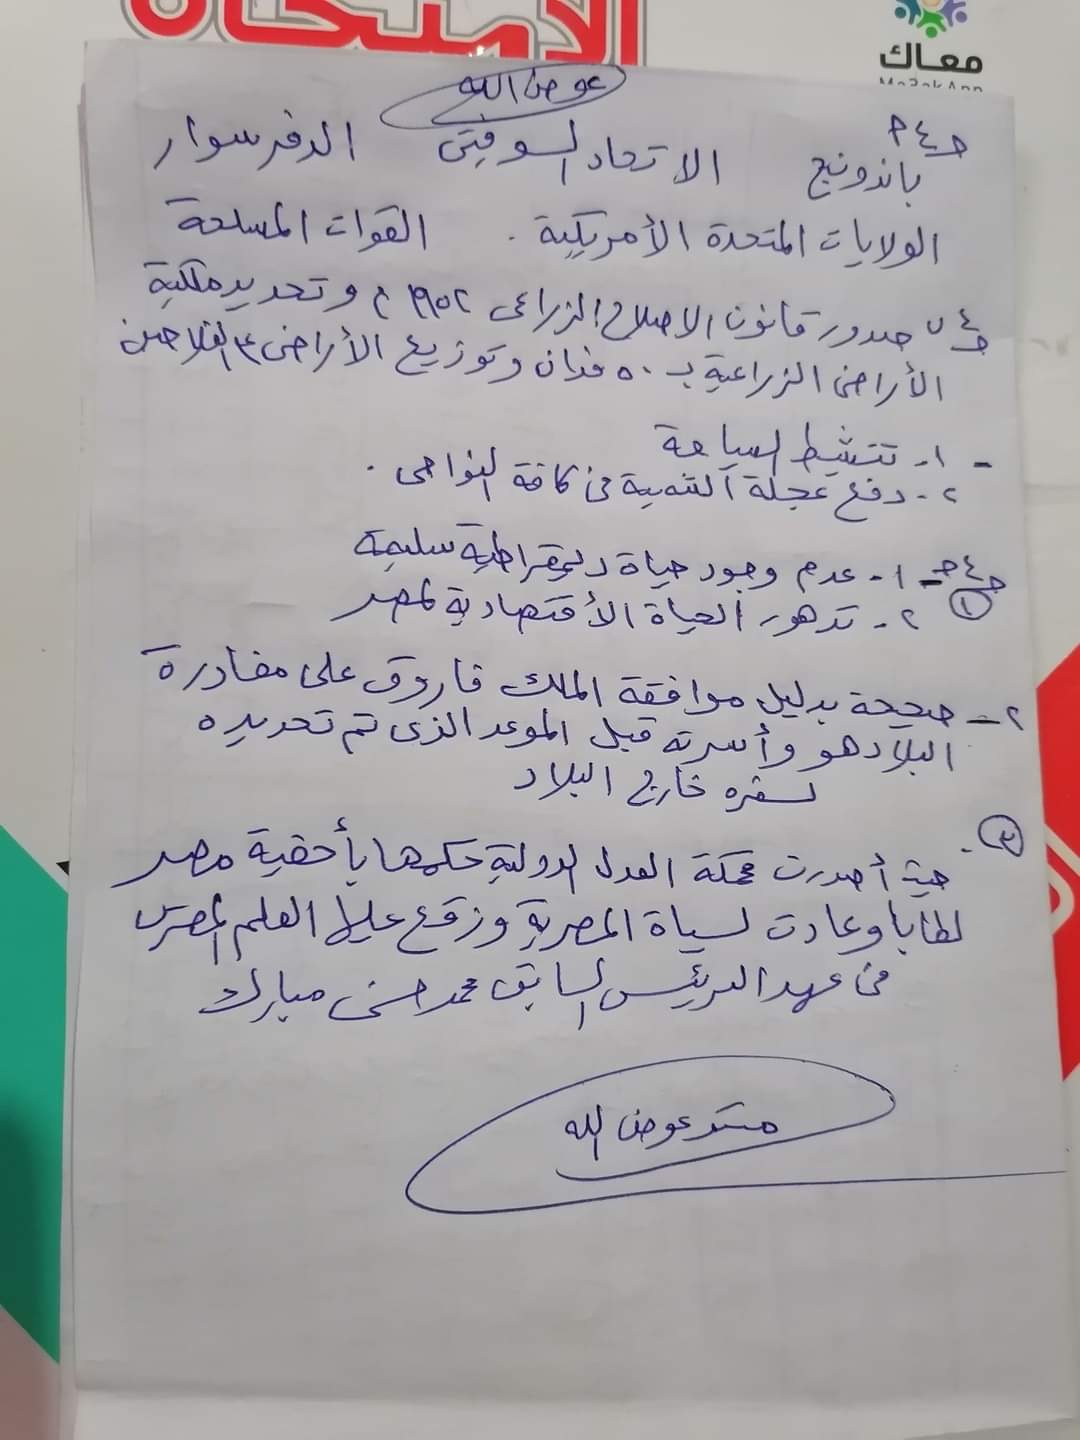 الامتحان
معاك
Ma3ak App
عوض الله
ج٤ م
باندونج الاتحاد السوفيتى الدفرسوار
الولايات المتحدة الأمريكية . القوات المسلحة
ج٤ ب صدور قانون الاصلاح الزراعى ١٩٥٢ م وتحديد ملكية
الأراضى الزراعية بـ ٥٠ فدان وتوزيع الأراضى ع الفلاحين
- ١- تنشيط السياحة
٢- دفع عجلة التنمية فى كافة النواحى .
ج٤ ج - ١- عدم وجود حياة ديمقراطية سليمة
① ٢- تدهور الحياة الأقتصادية لمصر
٢- صحيحة بدليل موافقة الملك فاروق على مغادرة
البلاد هو وأسرته قبل الموعد الذى تم تحديده
لسفره خارج البلاد
③.
حيث أصدرت محكمة العدل الدولية حكمها بأحقية مصر
لطابا وعادت لسياة المصرية ورفع عليها العلم المصرى
فى عهد الرئيس السابق محمد حسنى مبارك
عوض الله